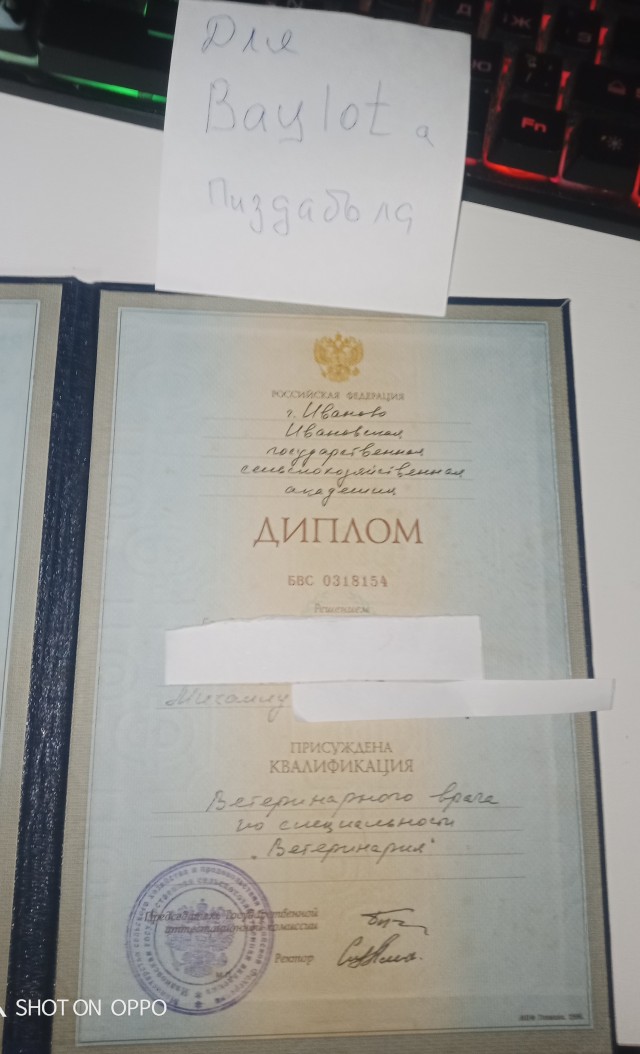 Для
Baylot а
Пиздабола
Д
Ж
Э
Ю
Fn
РОССИЙСКАЯ ФЕДЕРАЦИЯ
г. Иваново
Ивановская
государственная
сельскохозяйственная
академия
ДИПЛОМ
БВС 0318154
Решением
Михаилу
ПРИСУЖДЕНА
КВАЛИФИКАЦИЯ
Ветеринарного врача
по специальности
„Ветеринария"
Председатель Государственной
аттестационной комиссии
Ректор
SHOT ON OPPO